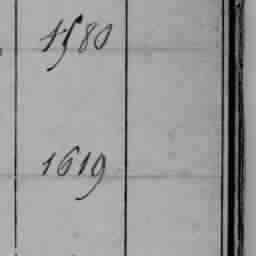 1580
1619